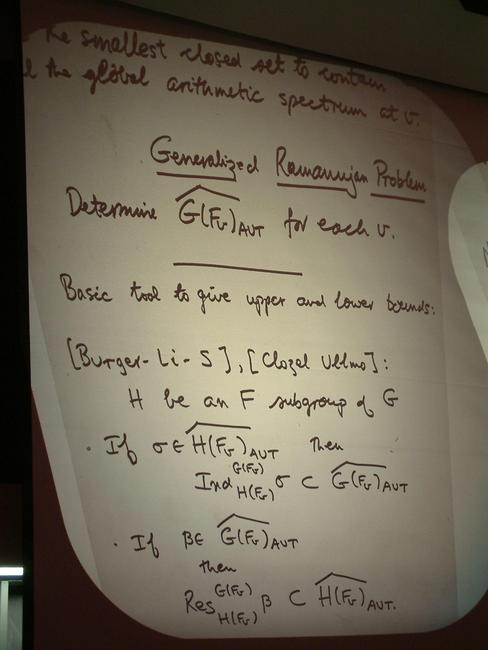 he smallest closed set to contain
l the global arithmetic spectrum at v.
Generalized Ramanujan Problem
Determine \widehat{G(F_v)}_{AUT} for each v.
Basic tool to give upper and lower bounds:
[Burger-Li-S], [Clozel Ullmo]:
H be an F subgroup of G
· If σ ∈ \widehat{H(F_v)}_{AUT} then
Ind_{H(F_v)}^{G(F_v)} σ ⊂ \widehat{G(F_v)}_{AUT}
· If β ∈ \widehat{G(F_v)}_{AUT}
then
Res_{H(F_v)}^{G(F_v)} β ⊂ \widehat{H(F_v)}_{AUT}.